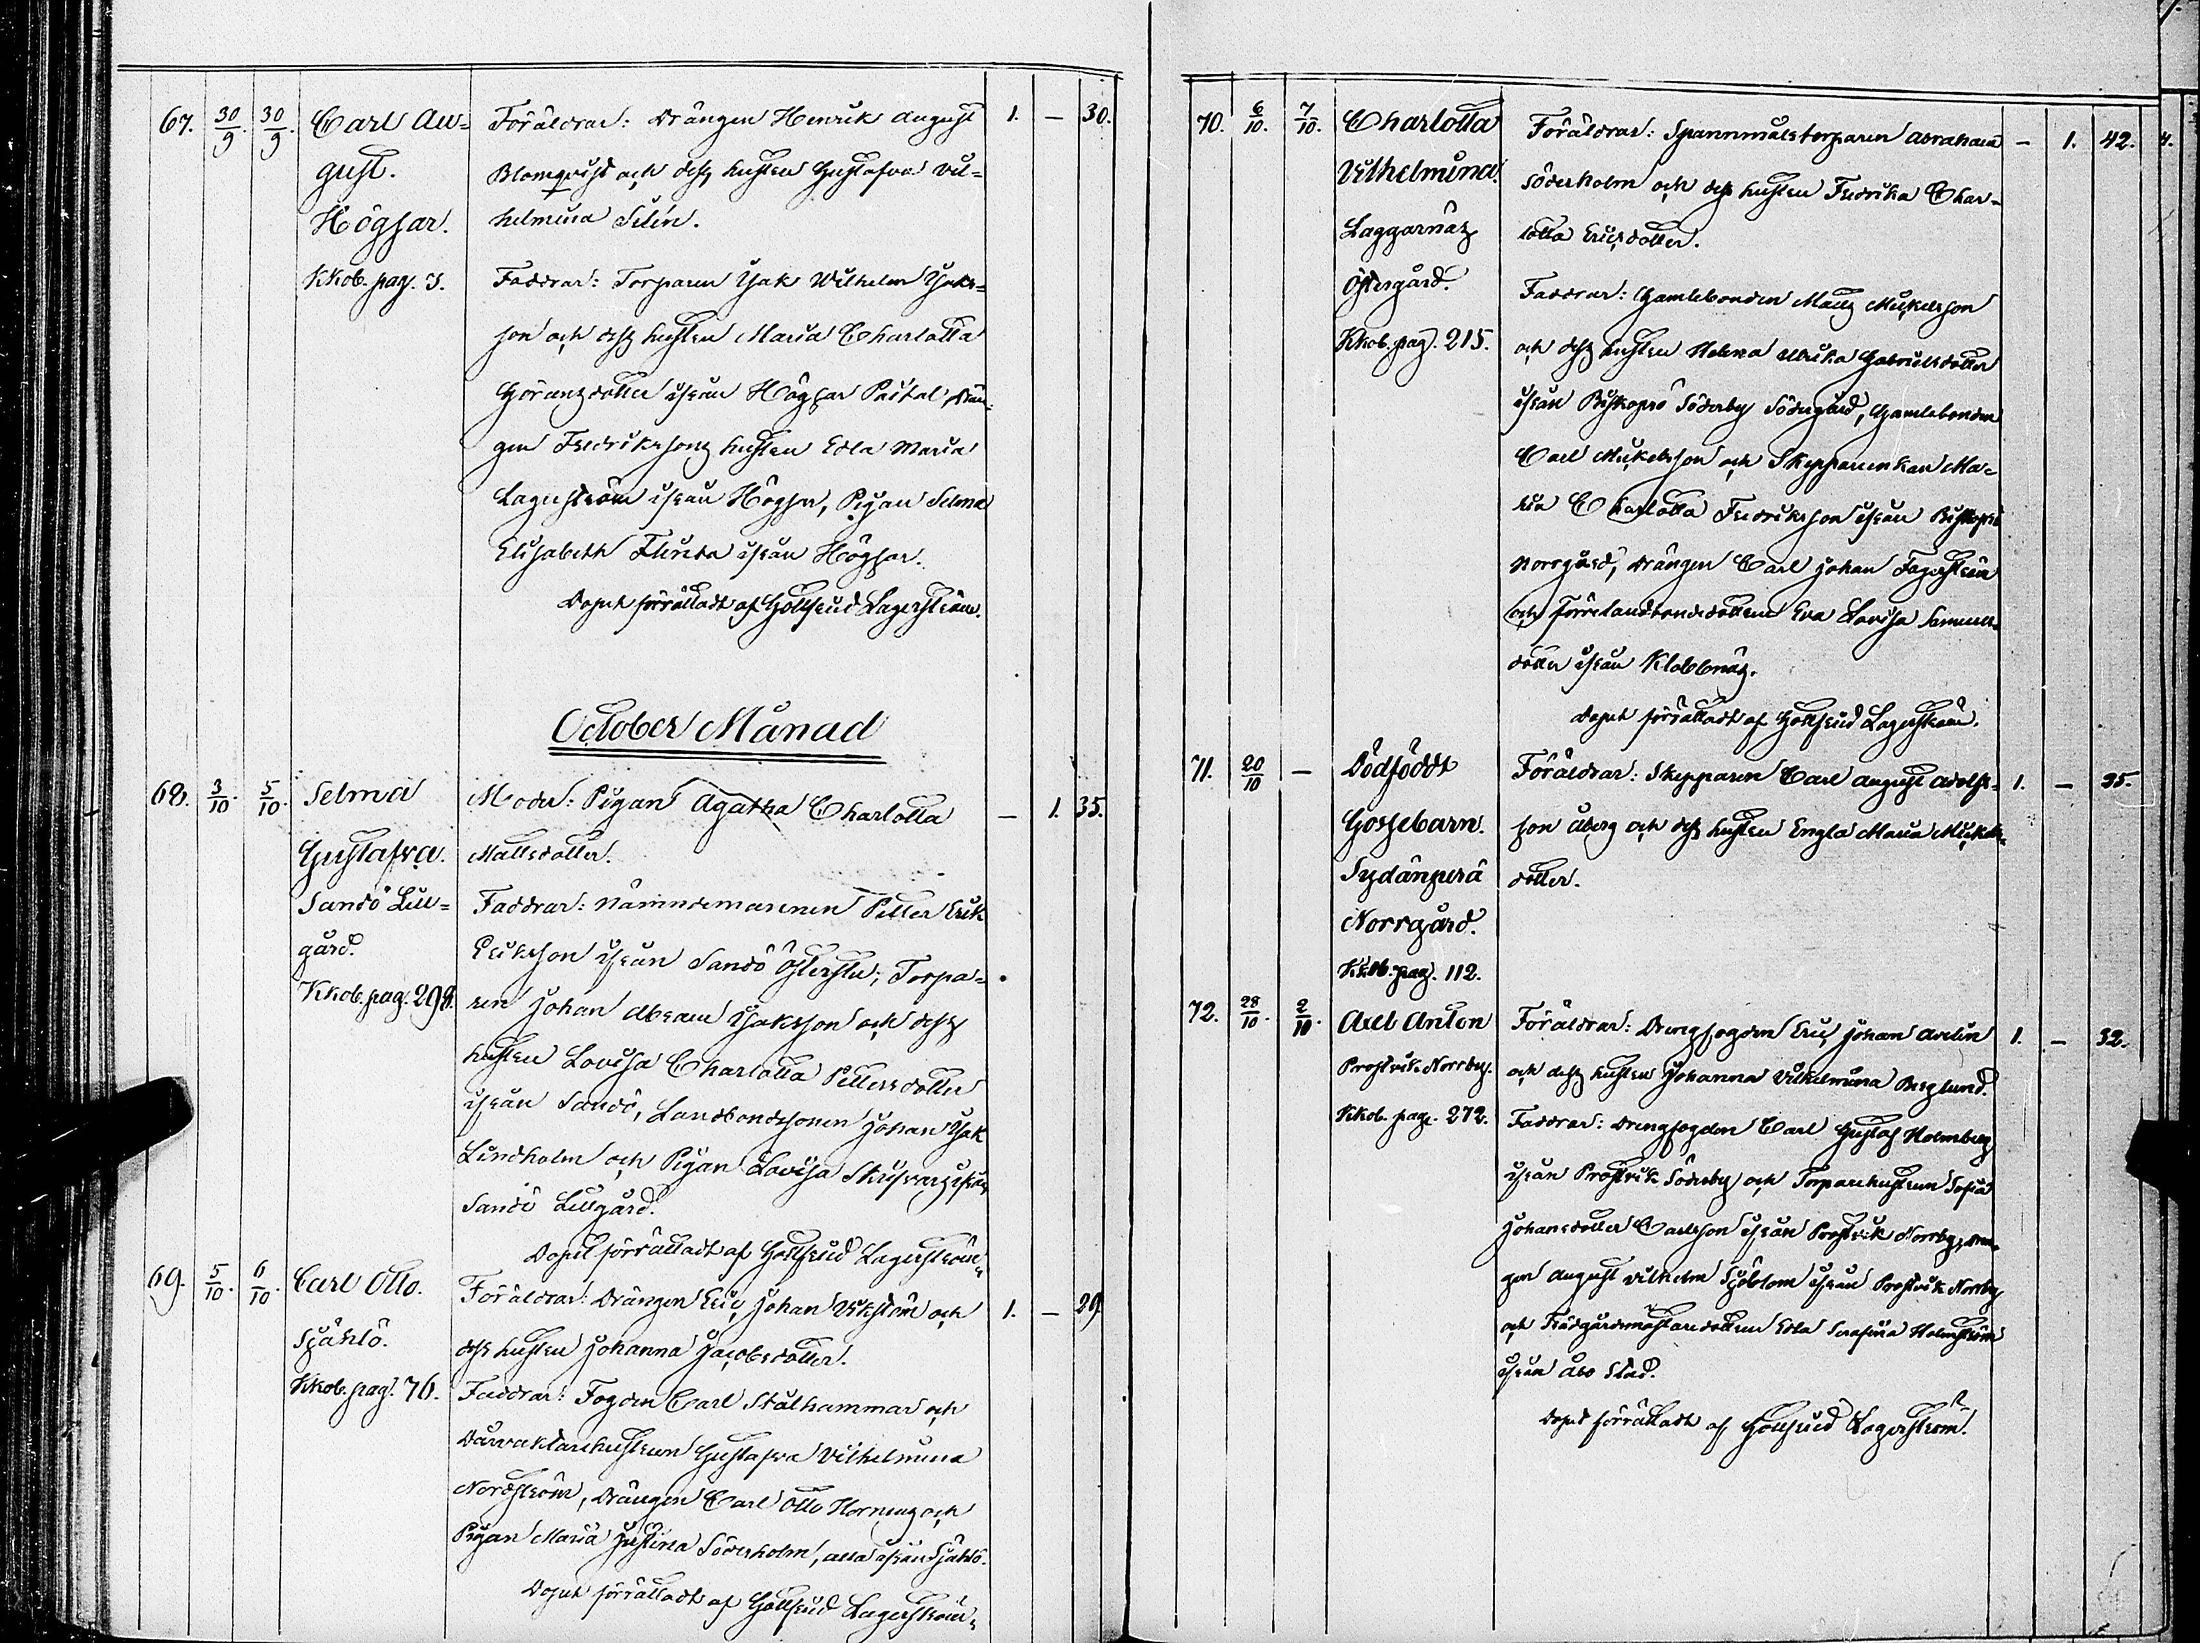 67. 30/9. 30/9. Carl Au= Föräldrar: Drängen Henrik August 1. — 30.
gust. Blomqvist och dess hustru Gustafva Vil=
Högsar. helmina Selin.
Kkob. pag. 3. Faddrar: Torparen Isak Wilhelm Isaks=
son och dess hustru Maria Charlotta
Göransdotter ifrån Högsar Prästal, Drän=
gen Fredrikssons hustru Edla Maria
Lagerström ifrån Högsar, Pigan Selma
Elisabeth Flinta ifrån Högsar.
Dopet förrättadt af Gottfrid Lagerström.
October Månad
68. 3/10. 5/10. Selma Moder: Pigan Agatha Charlotta — 1. 35.
Gustafva. Mattsdotter.
Sandö Lill= Faddrar: Nämndemannen Petter Erik
gård. Eriksson ifrån Sandö Österstu, Torpa=
Kkob. pag. 298. ren Johan Abram Isaksson och dess
hustru Lovisa Charlotta Pettersdotter
ifrån Sandö, Landbondesonen Johan Isak
Lindholm och Pigan Lovisa ifrån
Sandö Lillgård.
Dopet förrättadt af Gottfrid Lagerström.
69. 5/10. 6/10. Carl Otto. Föräldrar: Drängen Eric Johan Vikström och 1. — 29.
Själö. dess hustru Johanna Jacobsdotter.
Kkob. pag. 76. Faddrar: Fogden Carl Stålhammar och
Dårvaktarehustrun Gustafva Vilhelmina
Nordström, Drängen Carl Otto Horning och
Pigan Maria Justina Söderholm, alla ifrån Själö.
Dopet förrättadt af Gottfrid Lagerström.
70. 6/10. 7/10. Charlotta Föräldrar: Spannmålstorparen Abraham — 1. 42.
Vilhelmina. Söderholm och dess hustru Fredrika Char=
Laggarnäs lotta Ericsdotter.
Östergård. Faddrar: Gamlebonden Matts Mickelsson
Kkob. pag. 215. och dess hustru Helena Ulrika Gabrielsdotter
ifrån Biskopsö Söderby Södergård, Gamlebonden
Carl Mickelsson och Skepparenkan Ma=
ria Charlotta Fredriksson ifrån Biskopsö
Norrgård, Drängen Carl Johan Fagerström
och Förrelandbondedottern Eva Lovisa Samuels=
dotter ifrån Klobbnäs.
Dopet förrättadt af Gottfrid Lagerström.
71. 20/10 — Dödfödt Föräldrar: Skepparen Carl August Adolfs= 1. — 35.
Gossebarn. son Åberg och dess hustru Engla Maria Mickels=
Sydänperä dotter.
Norrgård.
Kkob. pag. 112.
72. 28/10. 2/11. Axel Anton Föräldrar: Drengfogden Eric Johan Avelin 1. — 32.
Prostvik Norrby. och dess hustru Johanna Vilhelmina Berglund.
Kkob. pag. 272. Faddrar: Drengfogden Carl Gustaf Holmberg
ifrån Prostvik Söderby och Torparehustrun Sofia
Johansdotter Carlsson ifrån Prostvik Norrby, Drän=
gen August Vilhelm Sjöblom ifrån Prostvik Norrby
och Trädgårdsmästaredottern Edla Serafina Holmström
ifrån Åbo Stad.
Dopet förrättadt af Gottfrid Lagerström.